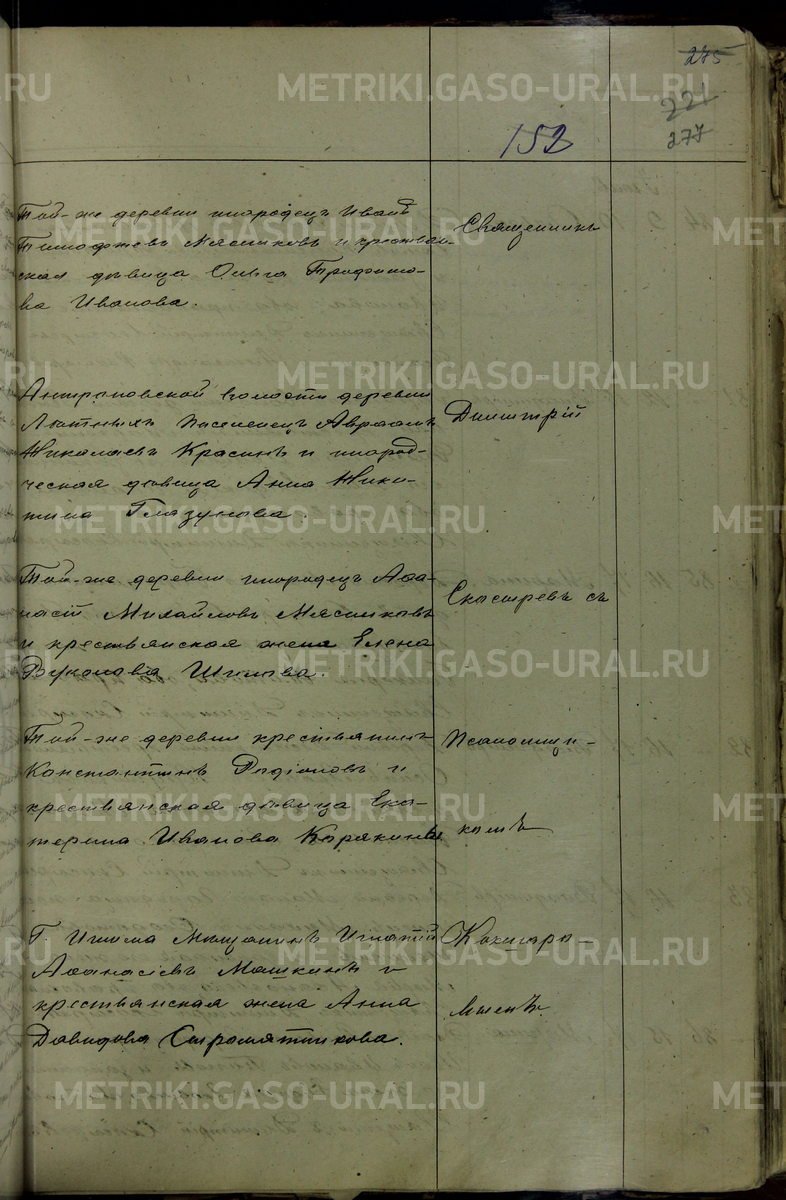 275
221
277
152
Той-же деревни инородецъ Иванъ
Тимофѣевъ Мясниковъ и крестьян-
ская дѣвица Ольга Трофимо-
ва Иванова.
Священникъ
Антроповской волости деревни
Лютыхъ поселенецъ Авраамъ
Николаевъ Красинъ и инород-
ческая дѣвица Анна Ники-
тина Глазунова.
Димитрій
Той-же деревни инородецъ Аѳа-
насій Михайловъ Мясниковъ
и крестьянская жена Елена
Шишова.
Скосыревъ съ
Той-же деревни крестьянинъ
Константинъ Родіоновъ и
крестьянская дѣвица Ека-
терина Иванова Корякина.
Псаломщи-
комъ
Г. Ишима Мѣщанинъ Игнатій
Аѳанасіевъ Машкинъ и
крестьянская жена Анна
Давидова Сыромятникова.
Кокшаро-
METRIKI.GASO-URAL.RU